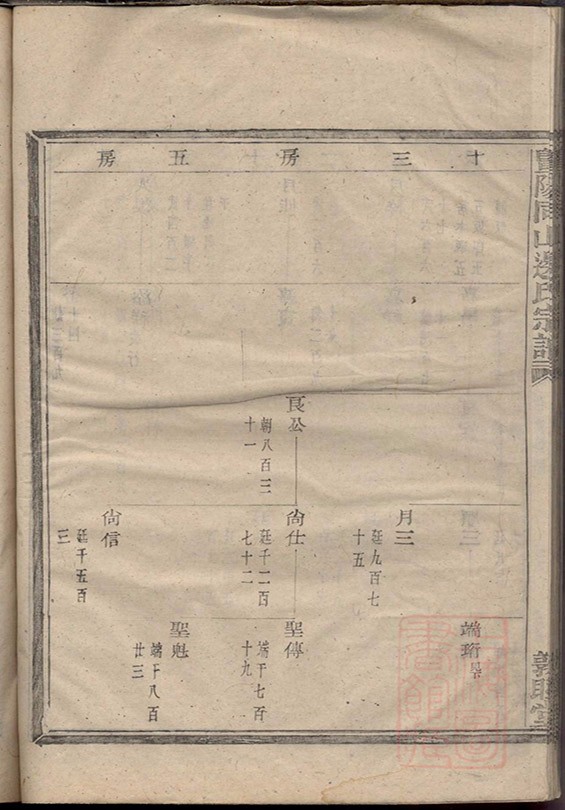 暨陽同山邊氏宗譜
敦睦堂
十三房五房
月三
廷九百七
十五
端珩
良公
朝八百三
十一
尚仕
廷千二百
七十二
聖傳
端千七百
十九
尚信
廷千五百
三
聖魁
端千八百
廿三